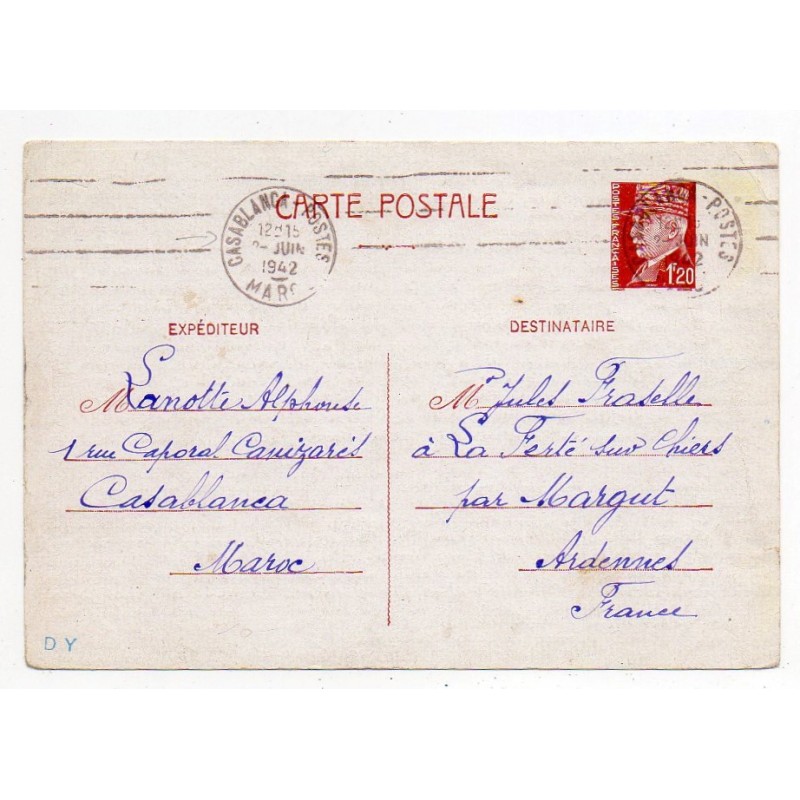 CASABLANCA-POSTES
12H15
JUIN
1942
MAROC
CARTE POSTALE
POSTES FRANÇAISES
1F20
EXPÉDITEUR
M Lanotte Alphonse
1 rue Caporal Canizarès
Casablanca
Maroc
DESTINATAIRE
M. Jules Fraselle
à La Ferté sur Chiers
par Margut
Ardennes
France
DY